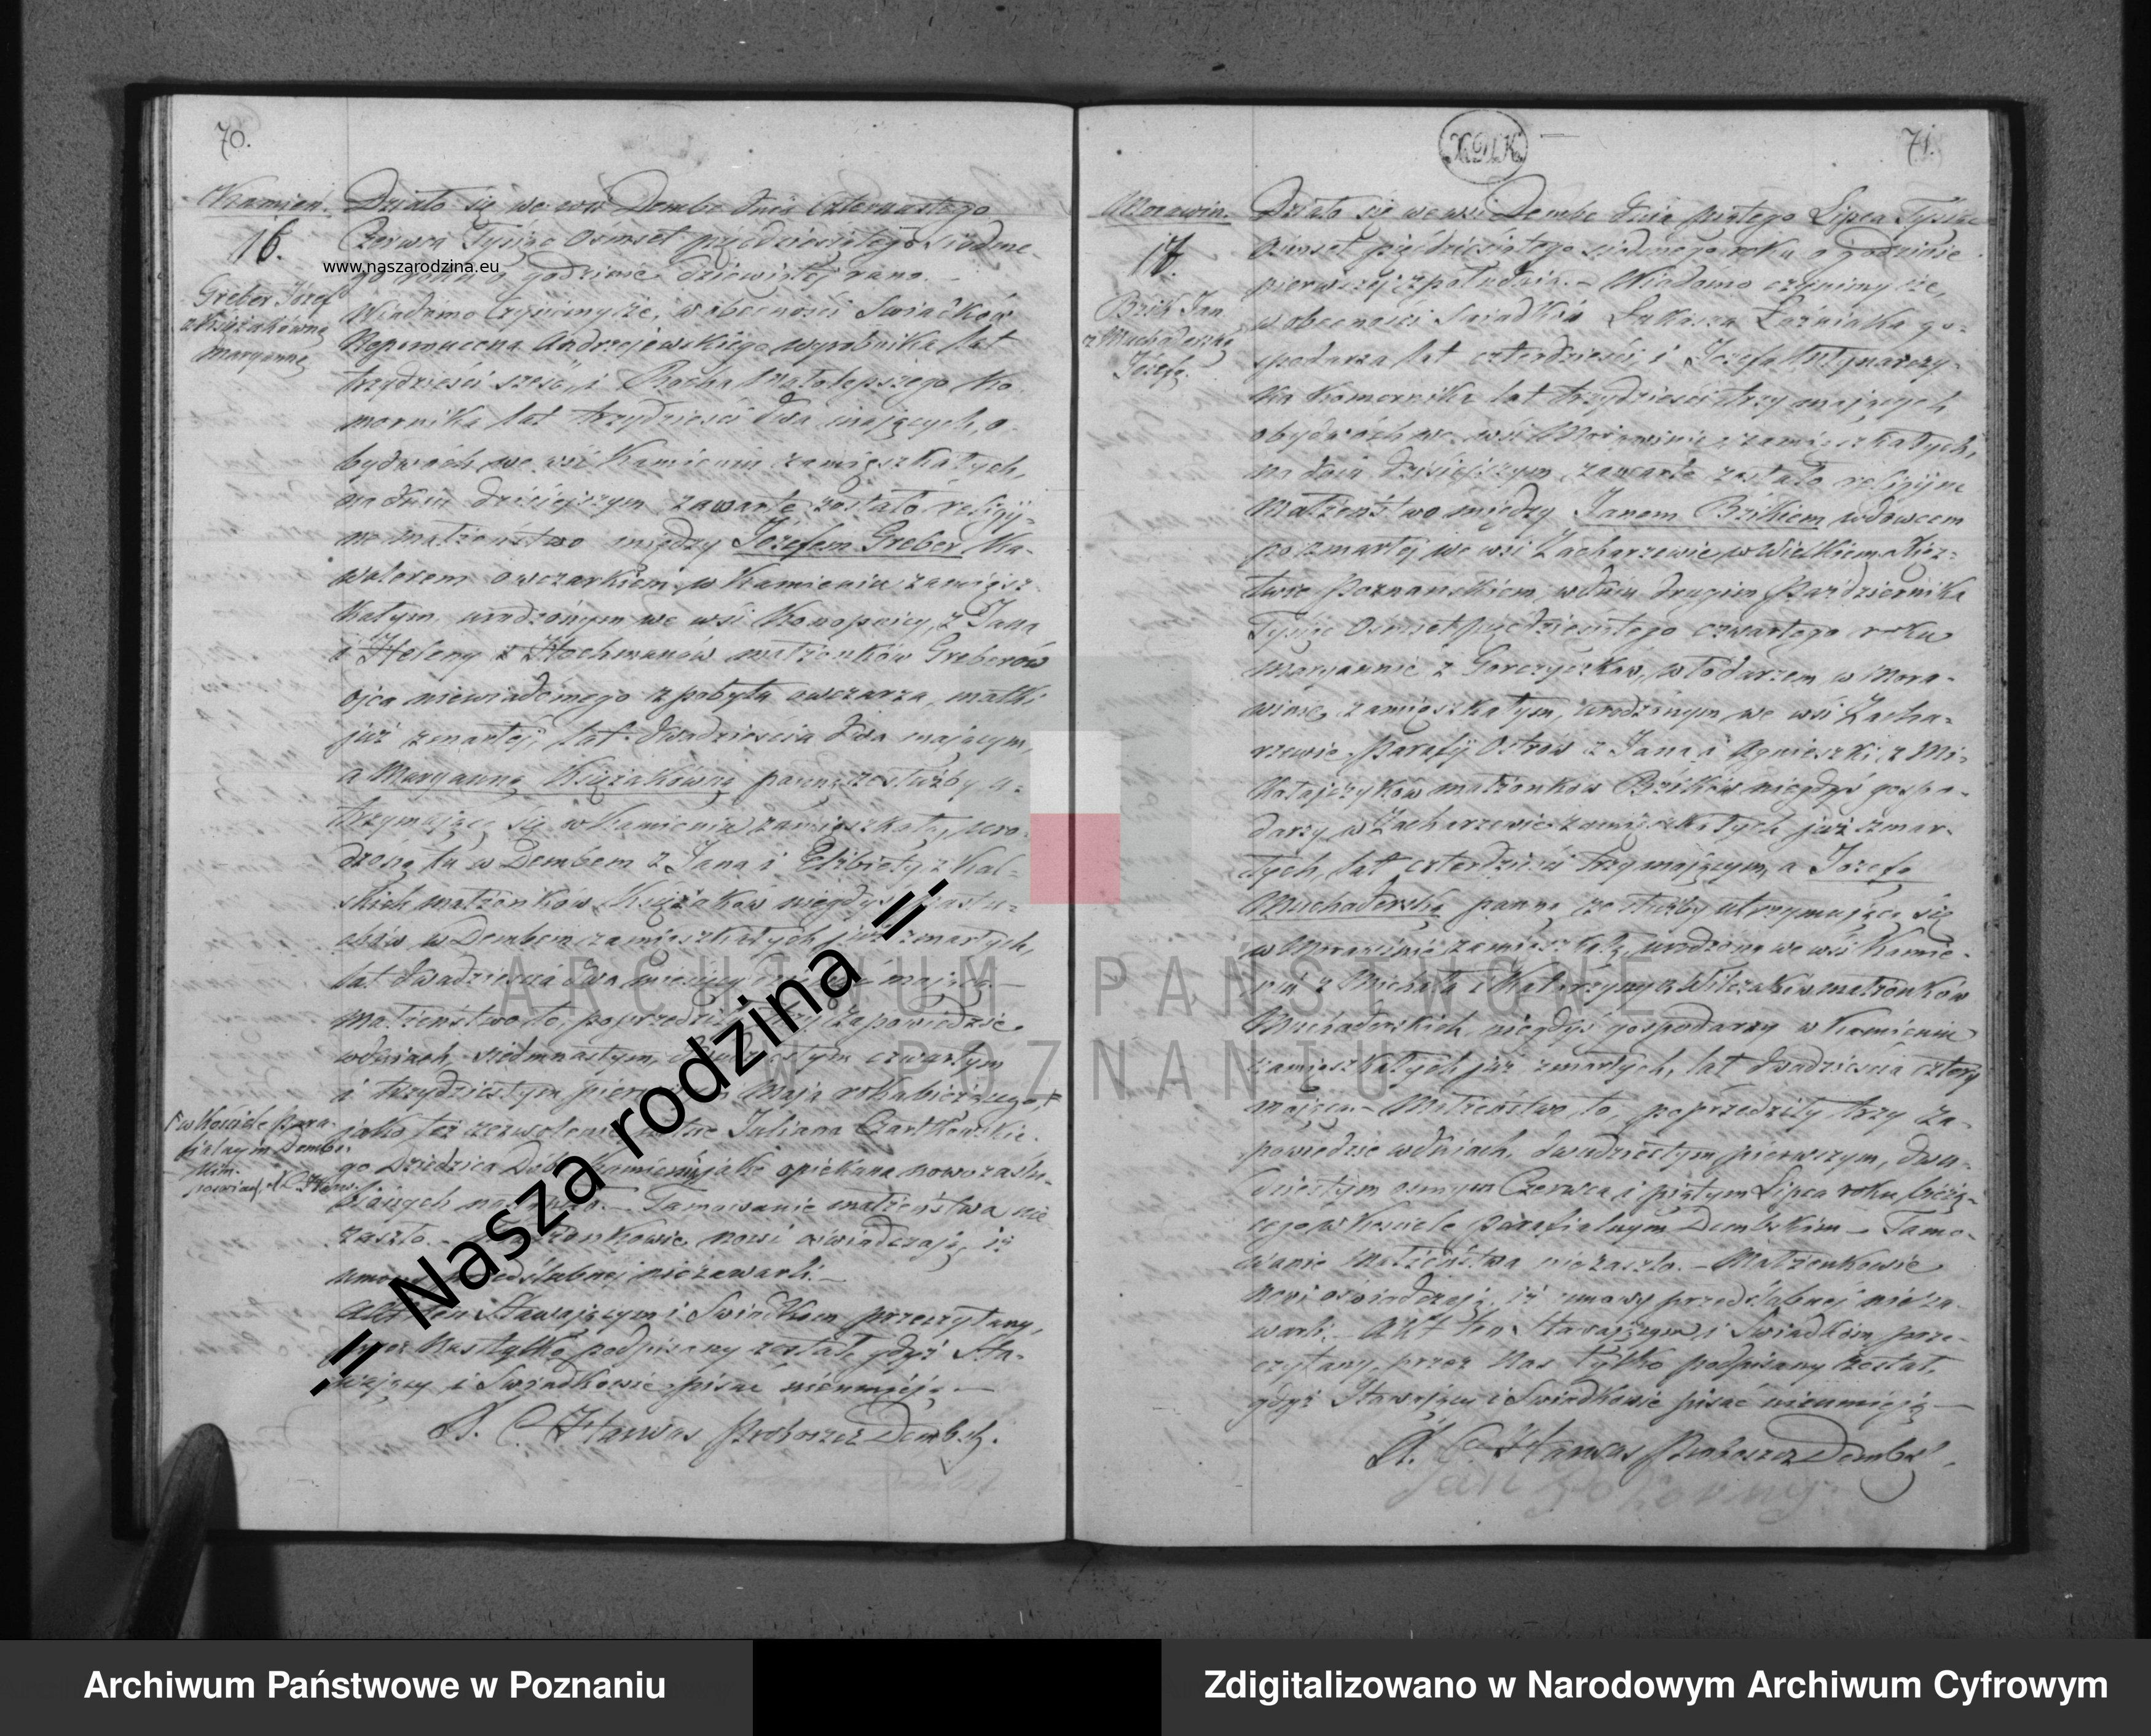 70.
Kamień.
16.
Greber Józef
z Księżakówną
Maryanną
Działo się we wsi Dembe dnia czternastego
Czerwca Tysiąc Osmset pięćdziesiątego siódme-
go roku o godzinie dziewiątej rano. –
Wiadomo czynimy, że, w obecności Swiadków
Nepomucena Andrzejewskiego wyrobnika lat
trzydzieści sześć, i Rocha Małolepszego Ko-
mornika lat trzydzieści dwa mających, o-
bydwóch we wsi Kamieniu zamieszkałych,
na dniu dzisiejszym zawarte zostało religij-
ne małżeństwo między Józefem Greber Ka-
walerem owczarkiem w Kamieniu zamiesz-
kałym urodzonym we wsi z Jana
i Heleny z małżonków Greberów
ojca niewiadomego z pobytu owczarza, matki
już zmarłej, lat dwadzieścia dwa mającym,
a Maryanną Księżakówną panną ze służby u-
trzymującą się w Kamieniu zamieszkałą, uro-
dzoną tu w Dembem z Jana i Elżbiety z Kal-
skich małżonków Księżaków niegdyś
w Dembem zamieszkałych już zmarłych,
lat dwadzieścia dwa mającą. –
Małżeństwo to, poprzedziły trzy zapowiedzie
w dniach siedmnastym, dwudziestym czwartym
i trzydziestym pierwszym Maja roku bieżącego,
jako też zezwolenie Juliana Czartkowskie-
go Dziedzica Dóbr Kamienia jako opiekuna nowo zaślu-
bionych – Tamowanie małżeństwa nie
zaszło. – Małżonkowie nowi oświadczają, iż
umowy przedślubnej nie zawarli. –
Akt ten Stawającym i Swiadkom przeczytany,
przez Nas tylko podpisany został, gdyż Sta-
wający i Swiadkowie pisać nieumieją –
X. C. Hawas Proboszcz Dembski.
w Kościele Para-
fialnym Dembs-
kim.
71.
Morawin.
17.
Brzik Jan
z Muchaderską
Józefą.
Działo się we wsi Dembe dnia piątego Lipca Tysiąc
Osmset pięćdziesiątego siódmego roku o godzinie
pierwszej z południa. – Wiadomo czynimy, że,
w obecności Swiadków Łukasza Łuźniaka go-
spodarza lat czterdzieści i Józefa
Komornika lat trzydzieści trzy mających
obydwóch we wsi Morawinie zamieszkałych,
na dniu dzisiejszym zawarte zostało religijne
Małżeństwo między Janem Brzikiem wdowcem
po zmarłej we wsi Zacharzewie w Wielkiem Księz-
twie Poznańskiem, w dniu drugim Października
Tysiąc Osmset pięćdziesiątego czwartego roku
Maryannie z Gorczyczków, włodarzem w Mora-
winie zamieszkałym, urodzonym we wsi Zacha-
rzewie parafji Ostrów z Jana i Agnieszki z Mi-
kołajczyków małżonków Brzików niegdyś gospo-
darzy w Zacharzewie zamieszkałych już zmar-
łych, lat czterdzieści trzy mającym, a Józefą
Muchaderską panną ze służby utrzymującą się
w Morawinie zamieszkałą, urodzoną we wsi Kamie-
niu z Michała i Katarzyny z Wilczaków małżonków
Muchaderskich niegdyś gospodarzy w Kamieniu
zamieszkałych już zmarłych, lat dwadzieścia cztery
mającą. – Małżeństwo to, poprzedziły trzy za-
powiedzie w dniach, dwudziestym pierwszym, dwu-
dziestym osmym Czerwca i piątym Lipca roku bieżą-
cego w Kosciele Parafialnym Dembskim – Tamo-
wanie Małżeństwa nie zaszło. – Małżonkowie
nowi oświadczają, iż umowy przedślubnej nie za-
warli. – Akt ten Stawającym i Swiadkom prze-
czytany, przez Nas tylko podpisany został,
gdyż Stawający i Swiadkowie pisać nieumieją –
X. C. Hawas Proboszcz Dembski.
www.naszarodzina.eu
.:: Nasza rodzina ::.
ARCHIWUM PAŃSTWOWE
W POZNANIU
Archiwum Państwowe w Poznaniu
Zdigitalizowano w Narodowym Archiwum Cyfrowym